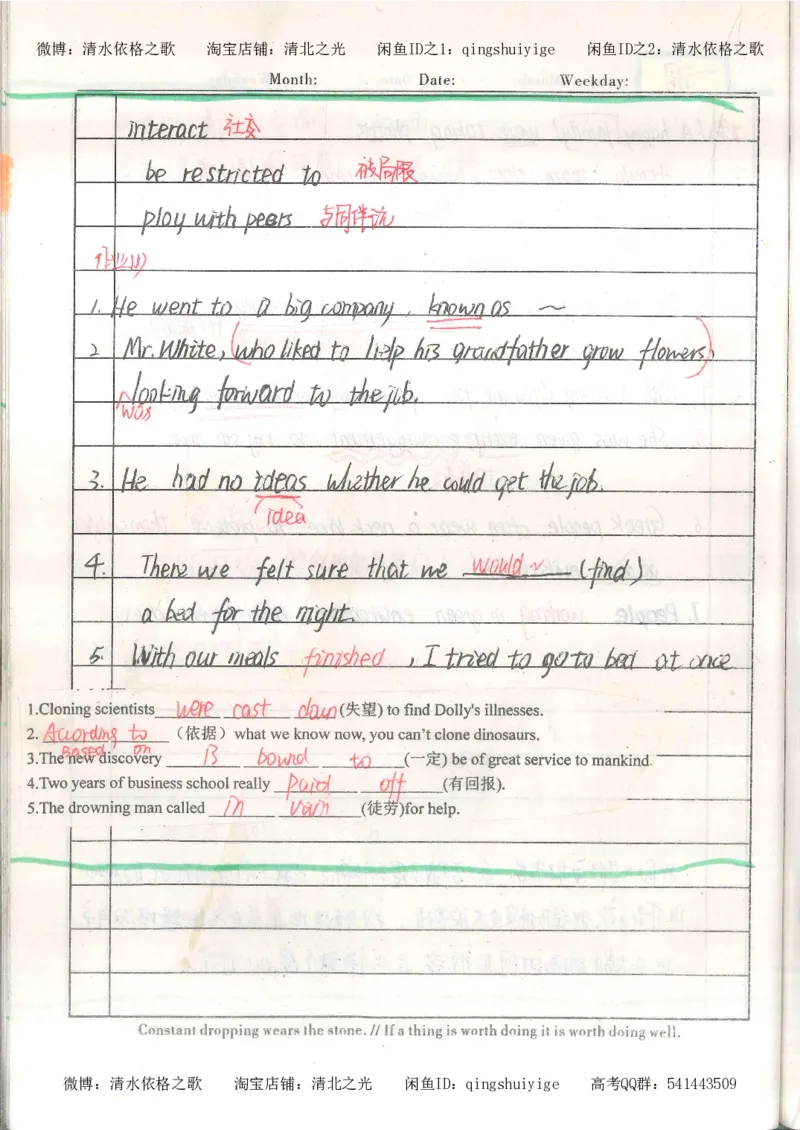 微博：清水依格之歌 淘宝店铺：清北之光 闲鱼ID之1：qingshuiyige 闲鱼ID之2：清水依格之歌
Month: Date: Weekday:
interact 社交
be restricted to 被局限
play with peers 与同伴玩
作业(1)
1. He went to a big company, known as ~
2 Mr. White, (who liked to help his grandfather grow flowers),
looking forward to the job.
was
3. He had no ideas whether he could get the job.
idea
4. There we felt sure that we would ~ (find)
a bed for the night.
5. With our meals finished, I tried to go to bed at once
1.Cloning scientists were cast down (失望) to find Dolly's illnesses.
2. Acording to (依据) what we know now, you can't clone dinosaurs.
Based on
3.The new discovery is bound to (一定) be of great service to mankind.
4.Two years of business school really paid off (有回报).
5.The drowning man called in vain (徒劳)for help.
Constant dropping wears the stone. // If a thing is worth doing it is worth doing well.
微博：清水依格之歌 淘宝店铺：清北之光 闲鱼ID：qingshuiyige 高考QQ群：541443509